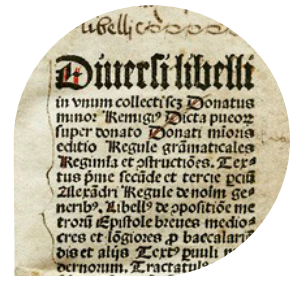 libelli
Diuersi libelli
in vnum collecti scʒ Donatus
minor Remigiꝰ Dicta pueoꝝ
super donato Donati mioris
editio Regule grāmaticales
Regimīa et ↄstructiōes. Tex⸗
tus p̄ime secūde et tercie ꝑciū
Alexādri Regule de noīm ge⸗
neribꝰ. Libellꝰ de ↄpositiōe me
troꝝ Epistole breues medio⸗
cres et lōgiores ꝓ baccalariū
dis et alijs Textꝰ puuli m
dernorum. Tractatul